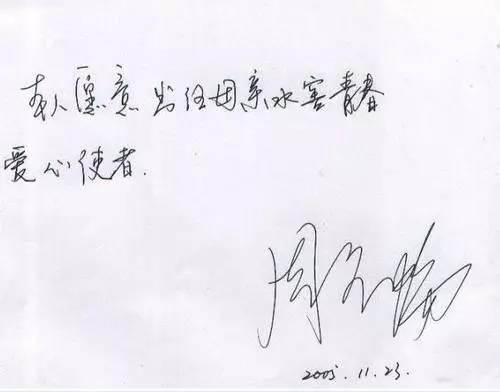 本人愿意出任母亲水窖青春
爱心使者.
2005.11.23.